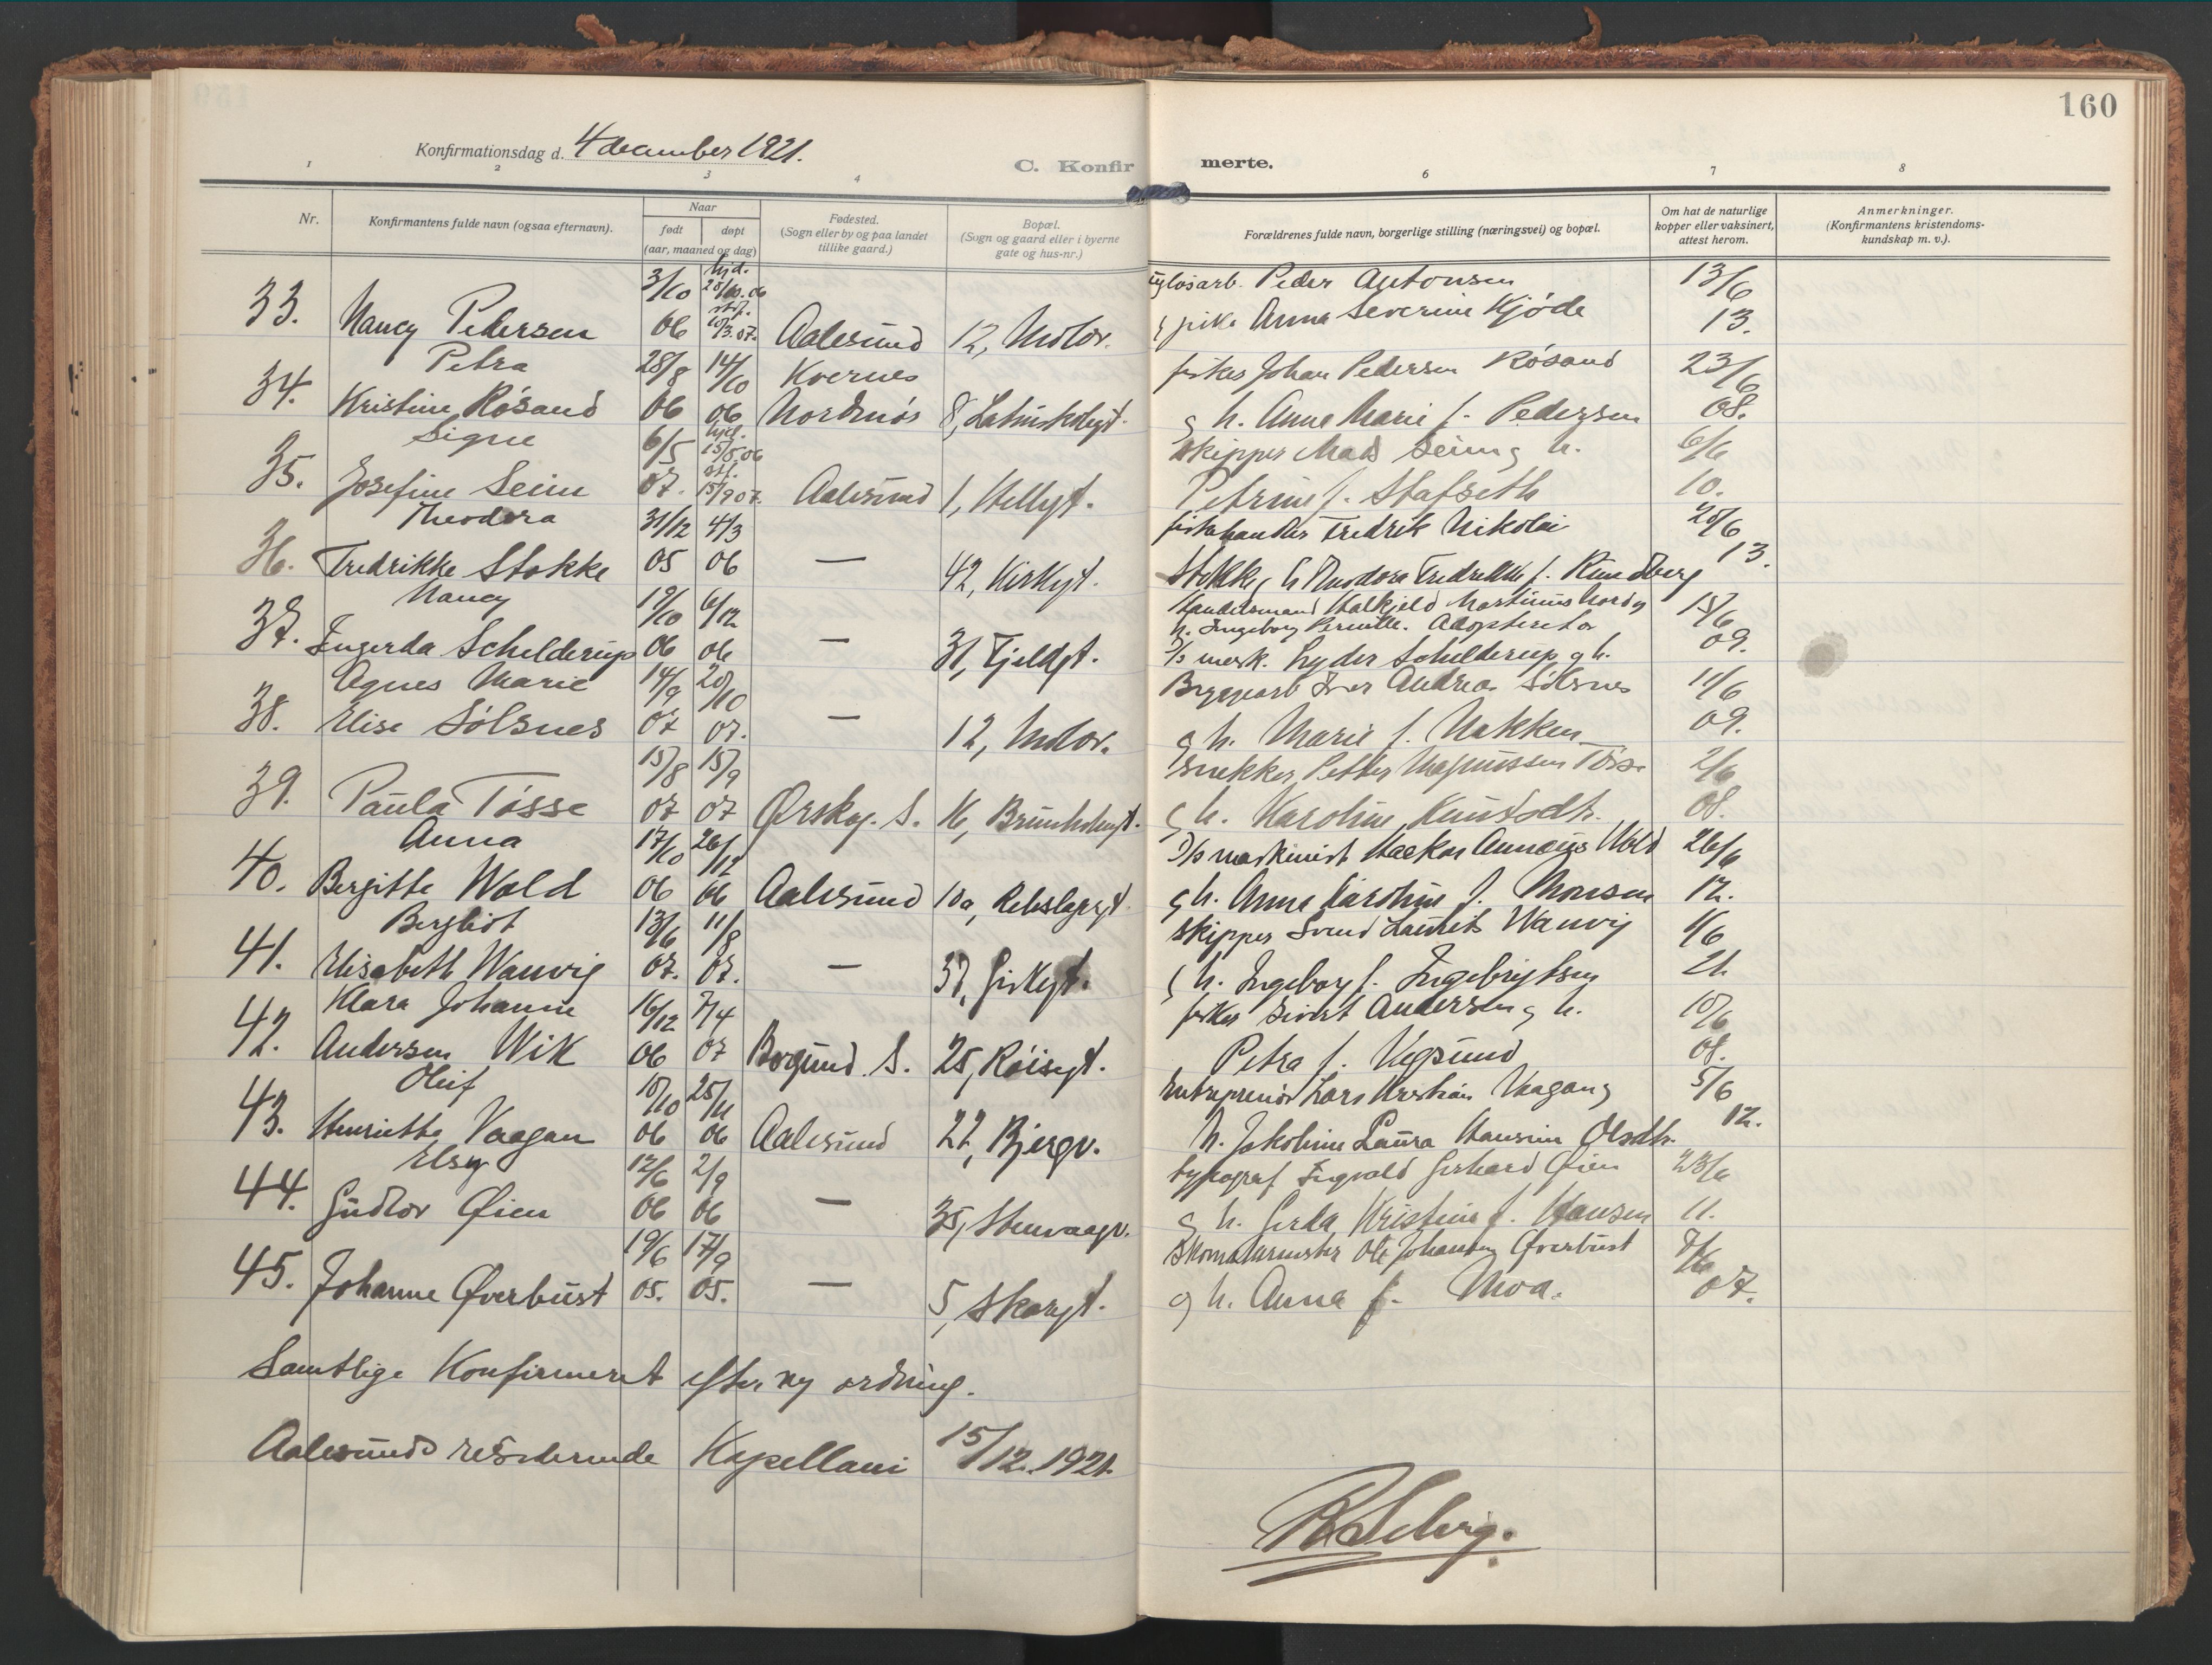 160
Konfirmationsdag d. 4 december 1921.
C. Konfir merte.
1 2 3 4 6 7 8
Nr.
Konfirmantens fulde navn (ogsaa efternavn).
Naar
født
døpt
(aar, maaned og dag)
Fødested.
(Sogn eller by og paa landet
tillike gaard.)
Bopæl.
(Sogn og gaard eller i byerne
gate og hus-nr.)
Forældrenes fulde navn, borgerlige stilling (næringsvei) og bopæl.
Om hat de naturlige
kopper eller vaksinert,
attest herom.
Anmerkninger.
(Konfirmantens kristendoms-
kundskap m. v.).
3/10 hjd. 28/10.06 Peder Antonsen 13/6
33. Nancy Pedersen 06 stf. 10/3.07. Aalesund 12, Nedov. pike Anna Severine Gjøde 13.
Petra 28/8 14/10 Kvernes fisker Johan Pedersen Røsand 23/6
34. Kristine Røsand 06 06 Nordnøs 8, g h. Anne Marie f. Pedersen 08.
Signe 6/5 hjd. 15/5.06 skipper Mads Seim g h. 6/6
35. Josefine Seim 07. stf. 15/9 07. Aalesund 1, Hellegt. Petrine f. Stafseth 10.
Theodora 31/12 4/3 fiskehandler Fredrik Nikolai 20/6
36. Fredrikke Stokke 05 06 — 42, Kirkegt. Stokke g h Theodora Fredrikke f. Rundberg 13.
Nancy 19/10 6/12 Handelsmand Halkjeld Martinius Nord g 15/6
37. Ingerda Schelderup 06 06 — 31, Fjeldgt. h. Ingeborg Pernille. Adopteret av 09.
D/s mask. Lyder Schelderup g h.
Agnes Marie 14/9 20/10 Bryggearb Iver Andreas Sølsnes 11/6
38. Elise Sølsnes 07 07. — 12, Nedov. g h. Marie f. Nakken 09.
15/8 15/9 Snekker Petter Magnussen Tøsse 2/6
39. Paula Tøsse 07 07 Ørskog. S. 16, Brunholmgt. g h. Karoline Knutsdtr. 08.
Anna 17/10 26/12 D/s maskinist Haakon Annæus Wold 26/6
40. Bergitte Wold 06 06 Aalesund 10a, Rebslagergt. g h. Anna Karoline f. Monsen 12.
Bergliot 13/6 11/8 skipper Svend Laurits Wanvig 1/6
41. Elisabeth Wanvig 07. 07. — 37, Giskegt. g h. Ingeborg f. Ingebrigtsen 21.
Klara Johanne 16/12 7/4 fisker Sivert Andersen g h. 10/6
42. Andersen Wik 06 07 Borgund S. 25, Røisegt. Petra f. Vegsund 08.
Oluf 10/10 25/11 Entreprenør Lars Kristian Vaagan g 5/6
43. Henriette Vaagan 06 06 Aalesund 22, Bjergv. h. Jakobine Laura Hansine Olsdtr. 12.
Elsy 12/6 2/9 typograf Ingvald Gerhard Øien 23/6
44. Gudlov Øien 06 06 — 35, Stenvaagv. g h. Gerda Kristine f. Hansen 11.
19/6 17/9 Skomakermester Ole Johansen Øverbust 7/6
45. Johanne Øverbust 05. 05. — 5, Skaregt. g h. Anna f. Moa. 07.
Samtlige Konfirmeret efter ny ordning.
Aalesunds residerende Kapellani 15/12.1921.